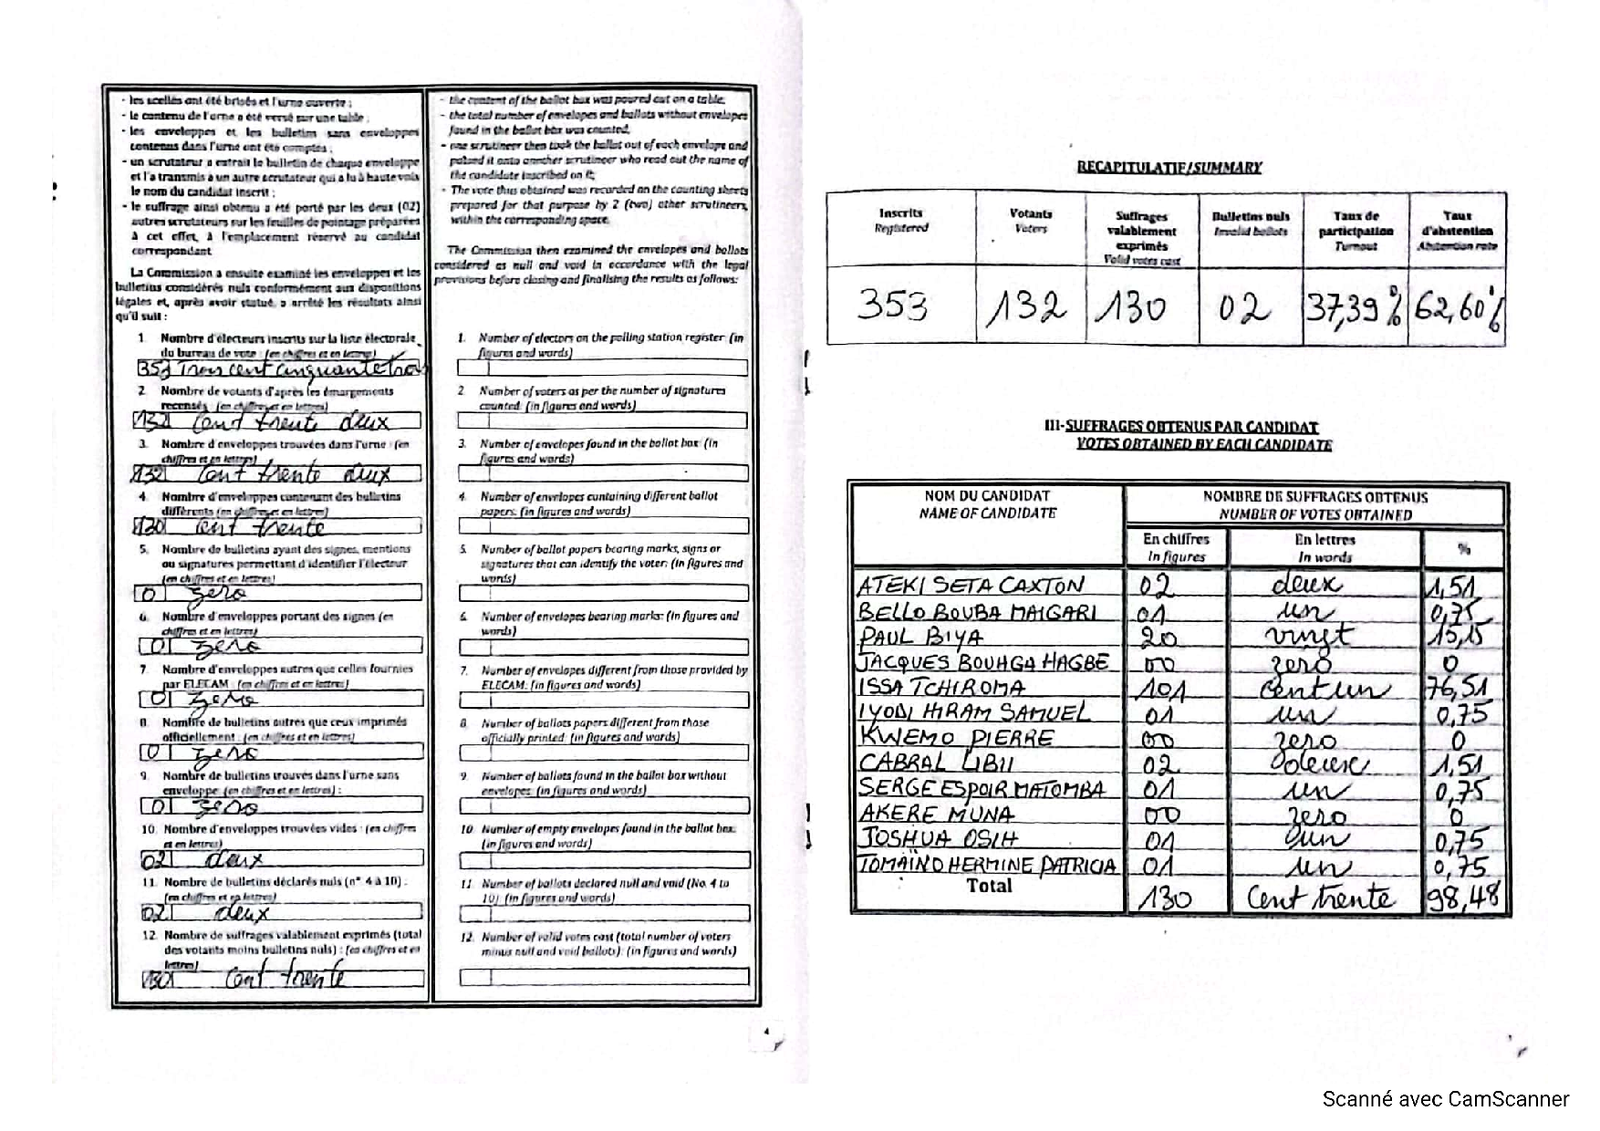 - les scellés ont été brisés et l'urne ouverte ;
- le contenu de l'urne a été versé sur une table ;
- les enveloppes et les bulletins sans enveloppes
contenus dans l'urne ont été comptés ;
- un scrutateur a extrait le bulletin de chaque enveloppe
et l'a transmis à un autre scrutateur qui a lu à haute voix
le nom du candidat inscrit ;
- le suffrage ainsi obtenu a été porté par les deux (02)
autres scrutateurs sur les feuilles de pointage préparées
à cet effet, à l'emplacement réservé au candidat
correspondant
La Commission a ensuite examiné les enveloppes et les
bulletins considérés nuls conformément aux dispositions
légales et, après avoir statué, a arrêté les résultats ainsi
qu'il suit :
1. Nombre d'électeurs inscrits sur la liste électorale
du bureau de vote : (en chiffres et en lettres)
353 Trois cent cinquante trois
2. Nombre de votants d'après les émargements
recensés (en chiffres et en lettres)
132 cent trente deux
3. Nombre d'enveloppes trouvées dans l'urne : (en
chiffres et en lettres)
132 cent trente deux
4. Nombre d'enveloppes contenant des bulletins
différents (en chiffres et en lettres)
130 cent trente
5. Nombre de bulletins ayant des signes, mentions
ou signatures permettant d'identifier l'électeur
(en chiffres et en lettres)
0 zero
6. Nombre d'enveloppes portant des signes (en
chiffres et en lettres)
0 zero
7. Nombre d'enveloppes autres que celles fournies
par ELECAM : (en chiffres et en lettres)
0 zero
8. Nombre de bulletins autres que ceux imprimés
officiellement : (en chiffres et en lettres)
0 zero
9. Nombre de bulletins trouvés dans l'urne sans
enveloppe (en chiffres et en lettres) :
0 zero
10. Nombre d'enveloppes trouvées vides : (en chiffres
et en lettres)
02 deux
11. Nombre de bulletins déclarés nuls (n° 4 à 10) :
(en chiffres et en lettres)
02 deux
12. Nombre de suffrages valablement exprimés (total
des votants moins bulletins nuls) : (en chiffres et en
lettres)
130 cent trente
- the content of the ballot box was poured out on a table,
- the total number of envelopes and ballots without envelopes
found in the ballot box was counted,
- one scrutineer then took the ballot out of each envelope and
passed it onto another scrutineer who read out the name of
the candidate inscribed on it;
- The vote thus obtained was recorded on the counting sheets
prepared for that purpose by 2 (two) other scrutineers,
within the corresponding space.
The Commission then examined the envelopes and ballots
considered as null and void in accordance with the legal
provisions before closing and finalising the results as follows:
1. Number of electors on the polling station register: (in
figures and words)
2 Number of voters as per the number of signatures
counted: (in figures and words)
3. Number of envelopes found in the ballot box: (in
figures and words)
4. Number of envelopes containing different ballot
papers: (in figures and words)
5. Number of ballot papers bearing marks, signs or
signatures that can identify the voter: (in figures and
words)
6. Number of envelopes bearing marks: (in figures and
words)
7. Number of envelopes different from those provided by
ELECAM: (in figures and words)
8. Number of ballots papers different from those
officially printed: (in figures and words)
9. Number of ballots found in the ballot box without
envelopes: (in figures and words)
10 Number of empty envelopes found in the ballot box:
(in figures and words)
11. Number of ballots declared null and void (No. 4 to
10): (in figures and words)
12. Number of valid votes cast (total number of voters
minus null and void ballots): (in figures and words)
4
RECAPITULATIF/SUMMARY
Inscrits Registered
Votants Voters
Suffrages valablement exprimés Valid votes cast
Bulletins nuls Invalid ballots
Taux de participation Turnout
Taux d'abstention Abstention rate
353 132 130 02 37,39 % 62,60 %
III-SUFFRAGES OBTENUS PAR CANDIDAT
VOTES OBTAINED BY EACH CANDIDATE
NOM DU CANDIDAT NOMBRE DE SUFFRAGES OBTENUS
NAME OF CANDIDATE NUMBER OF VOTES OBTAINED
En chiffres En lettres %
In figures In words
ATEKI SETA CAXTON 02 deux 1,51
BELLO BOUBA MAIGARI 01 un 0,75
PAUL BIYA 20 vingt 15,15
JACQUES BOUHGA HAGBE 00 zero 0
ISSA TCHIROMA 101 cent un 76,51
IYODI HIRAM SAMUEL 01 un 0,75
KWEMO PIERRE 00 zero 0
CABRAL LIBII 02 deux 1,51
SERGE ESPOIR MATOMBA 01 un 0,75
AKERE MUNA 00 zero 0
JOSHUA OSIH 01 un 0,75
TOMAÏNO HERMINE PATRICIA 01 un 0,75
Total 130 Cent trente 98,48
Scanné avec CamScanner